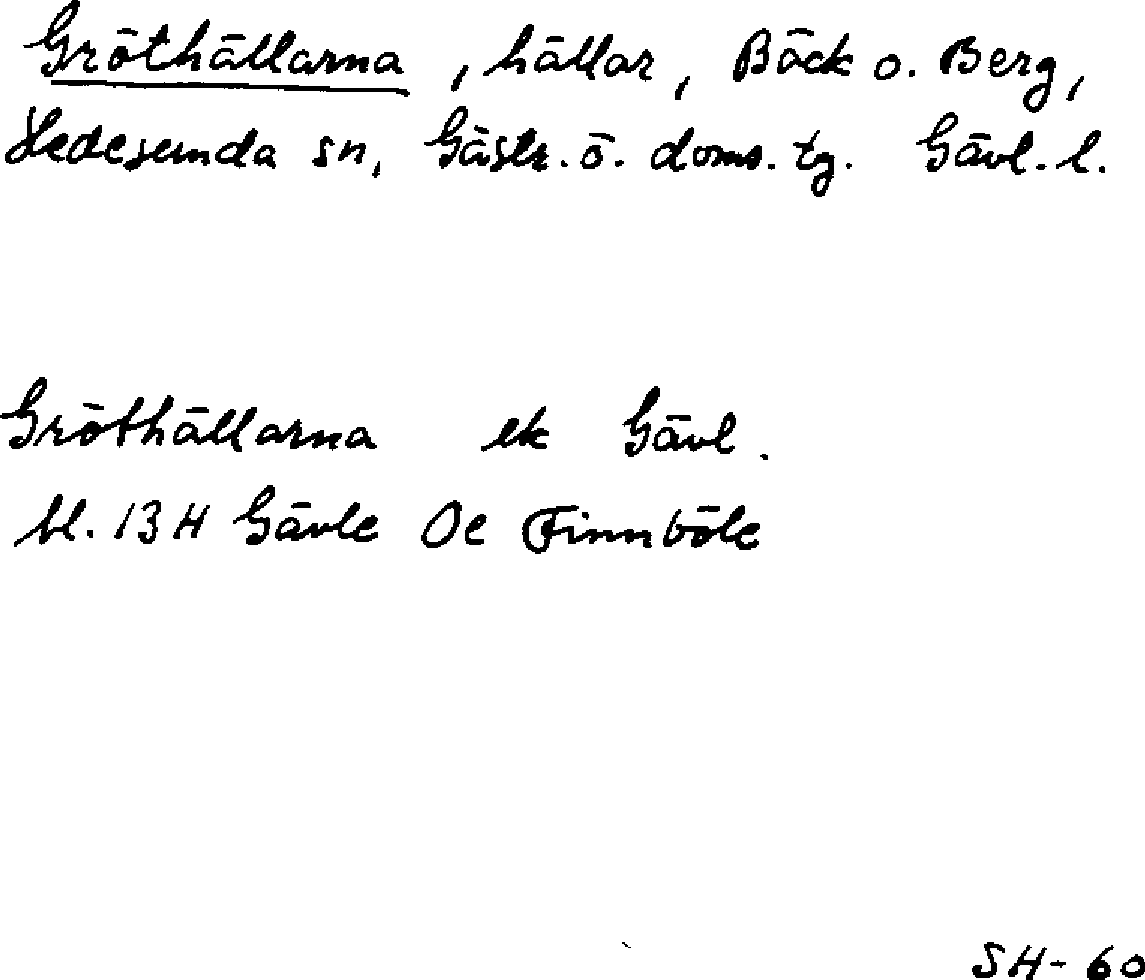 Gröthällarna, hällar, Bäck o. Berg,
Hedesunda sn, Gästr. ö. doms. tg. Gävl. l.
Gröthällarna ek Gävl.
bl. 13H Gävle Oe Finnböle
SH-60